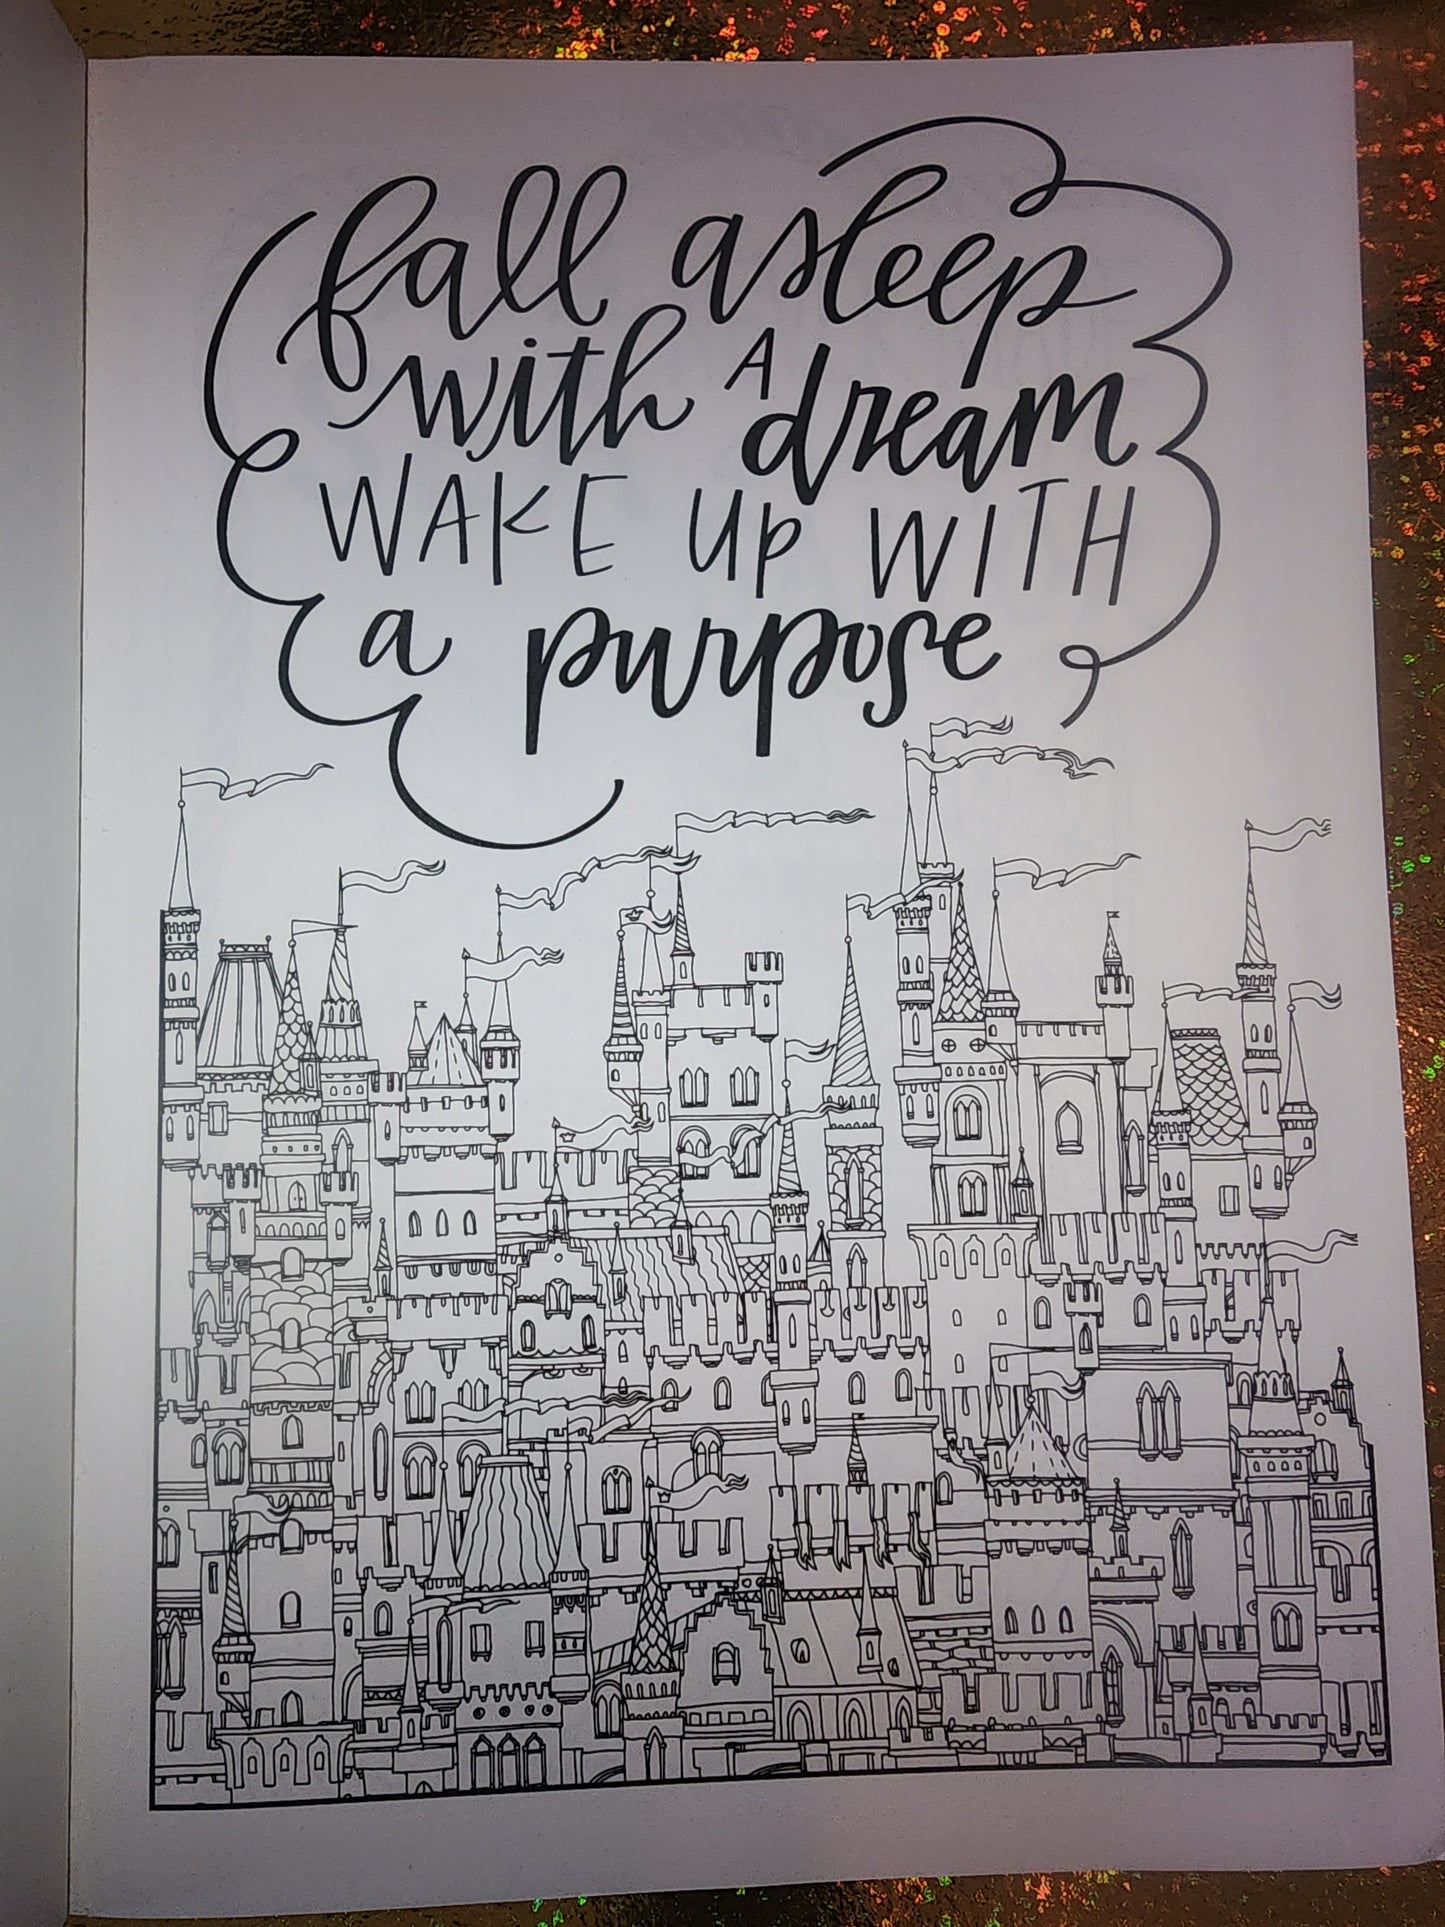 fall asleep
with A dream
WAKE UP WITH
a purpose